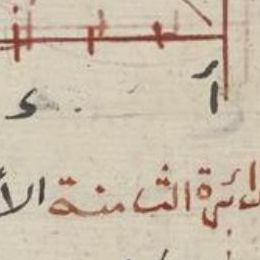 أ ء
دائرة الثامنة الأ